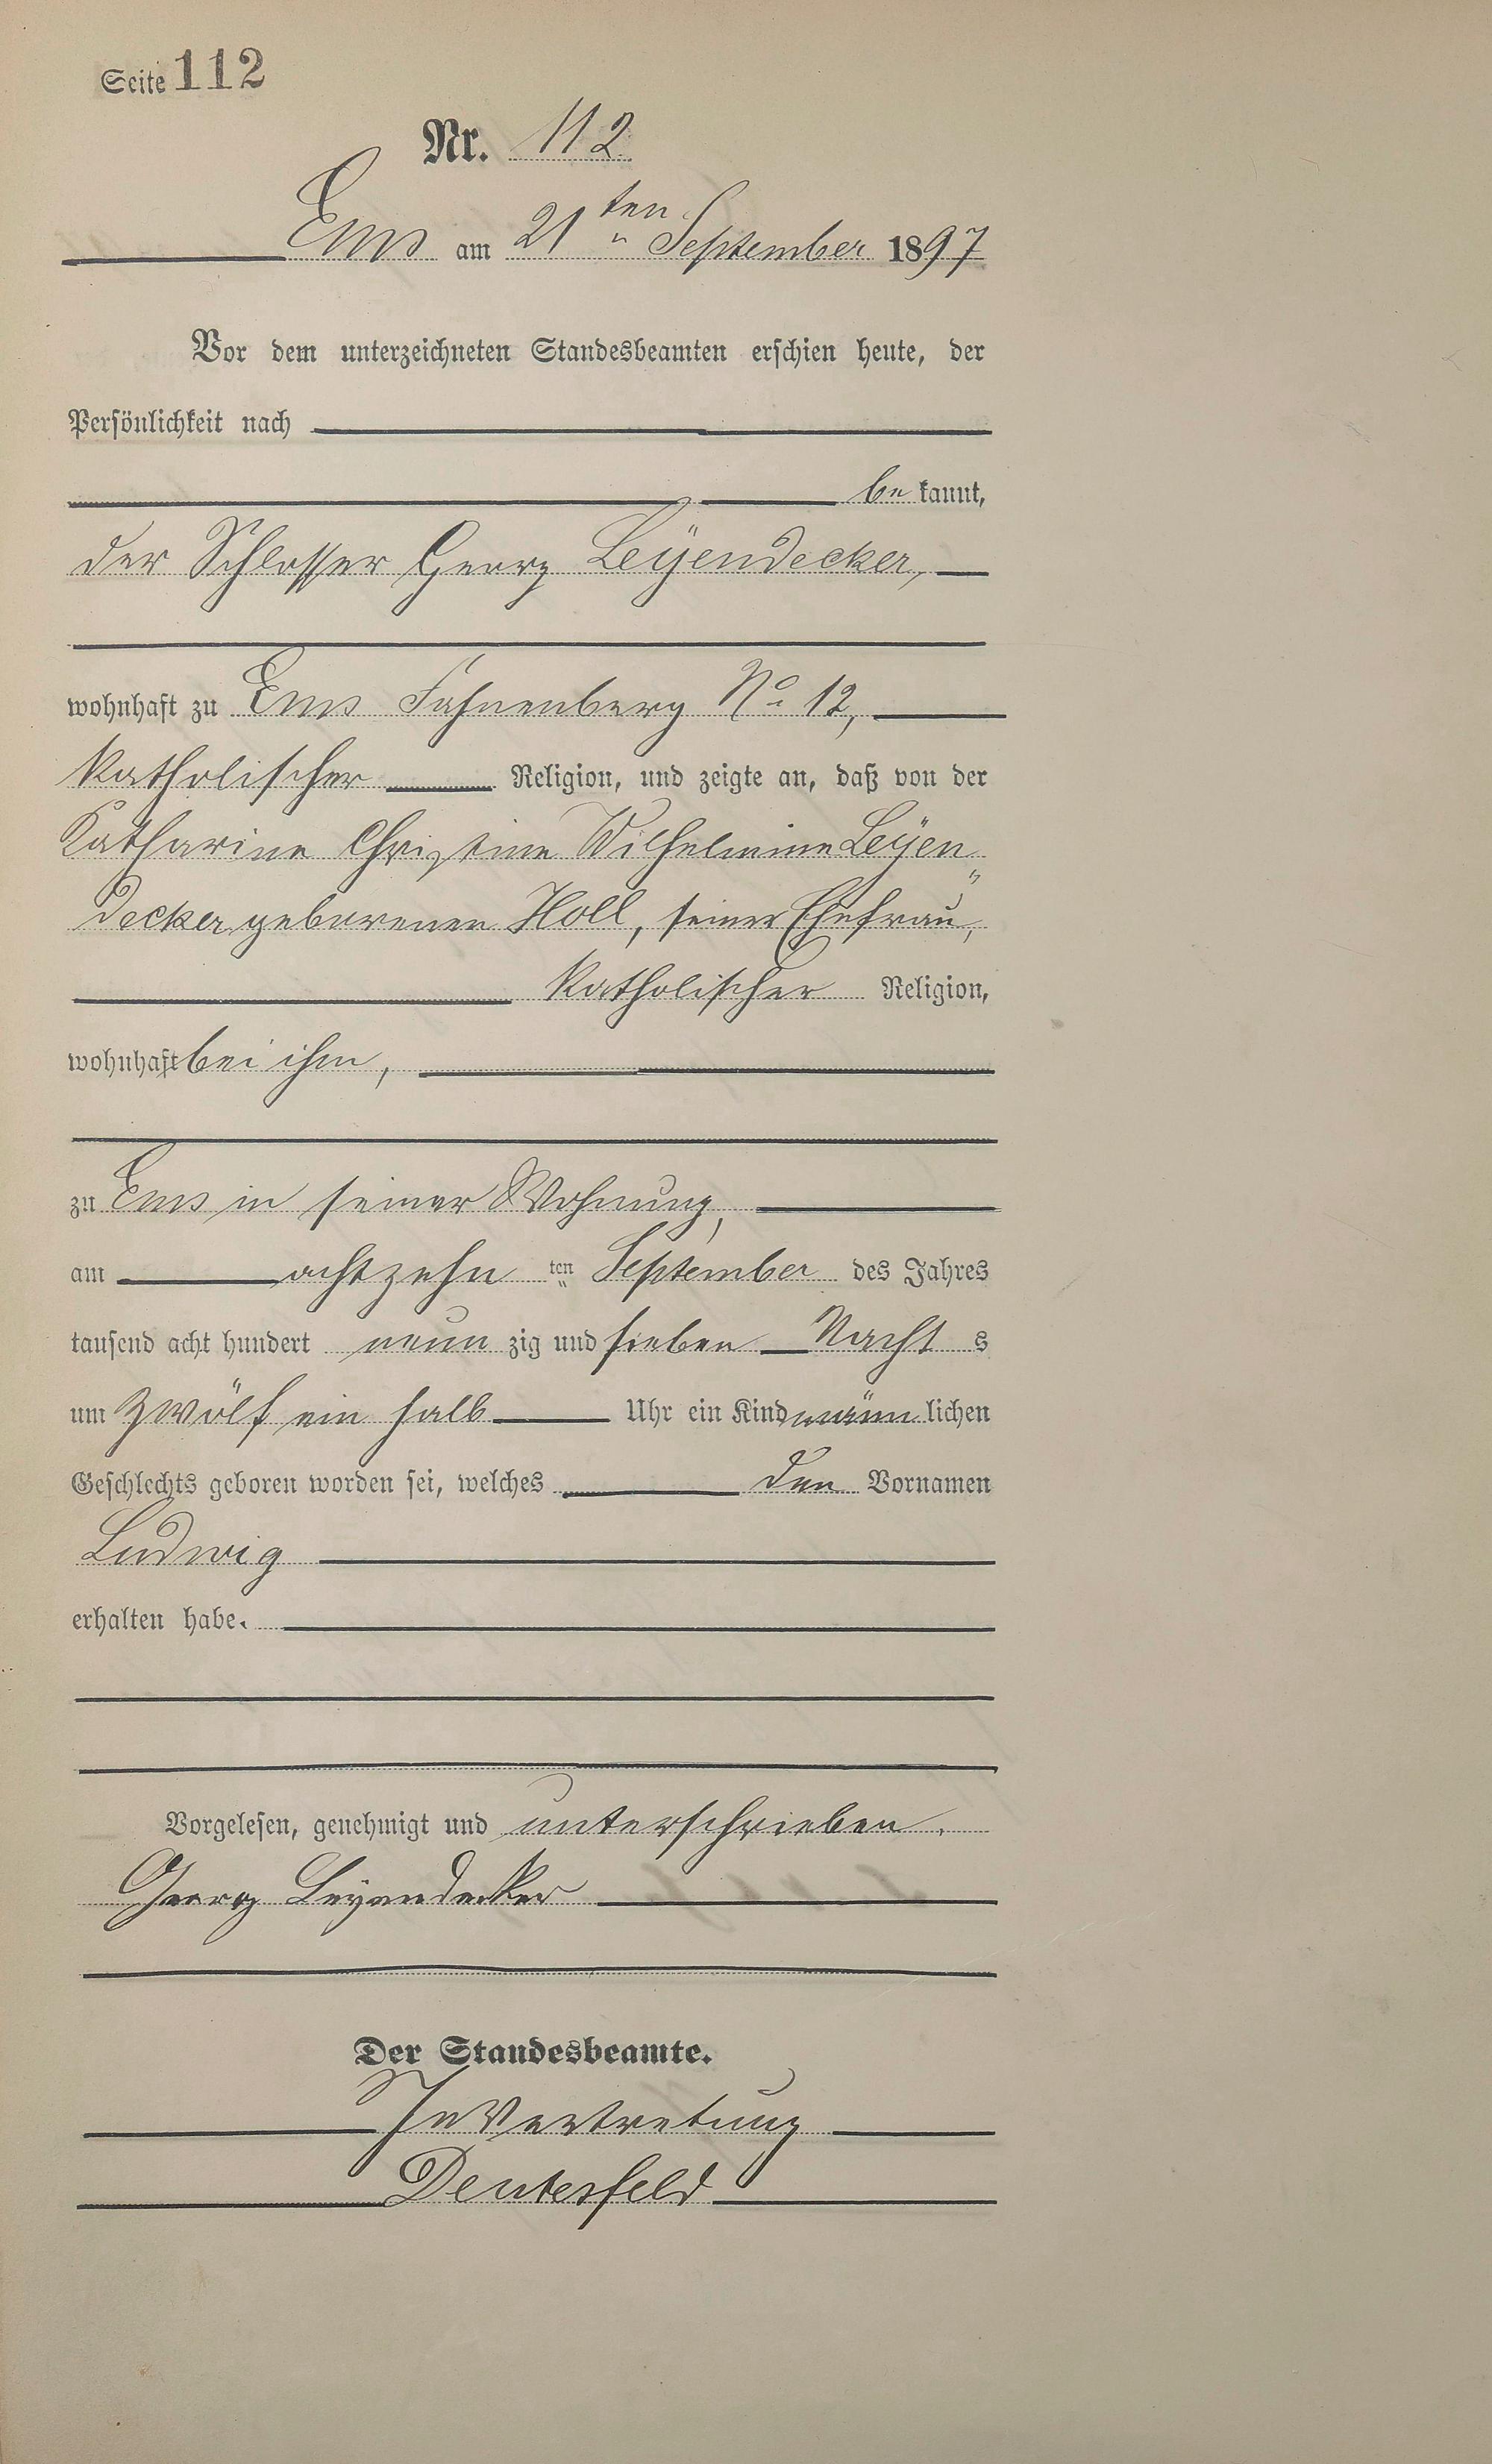 Seite 112
Nr. 112
Ems am 21ten September 1897
Vor dem unterzeichneten Standesbeamten erschien heute, der
Persönlichkeit nach
be kannt,
der Schlosser Georg Leÿendecker,
wohnhaft zu Ems Fahnenberg No 12,
katholischer Religion, und zeigte an, daß von der
Katharine Christine Wilhelmine Leÿen„
decker geborenen Holl, seiner Ehefrau,
katholischer Religion,
wohnhaft bei ihm,
zu Ems in seiner Wohnung,
am achtzehn ten September des Jahres
tausend acht hundert neun zig und sieben Nacht s
um zwölf ein halb Uhr ein Kind männ lichen
Geschlechts geboren worden sei, welches den Vornamen
Ludwig
erhalten habe.
Vorgelesen, genehmigt und unterschrieben.
Georg Leyendecker
Der Standesbeamte.
In Vertretung
Deutesfeld